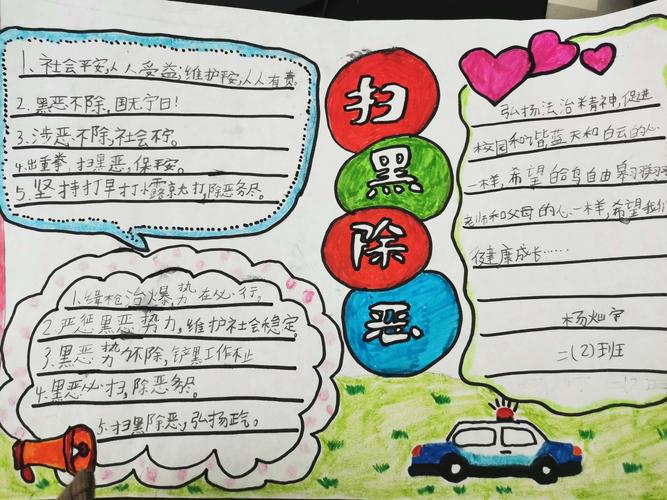 1、社会平安,人人受益;维护平安,人人有责。
2.黑恶不除,国无宁日!
3.涉恶不除,社会不宁。
4.出重拳,扫黑恶,保平安。
5.坚持打早打小露头就打,除恶务尽。
扫
黑
除
恶
弘扬法治精神,促进
校园和谐蓝天和白云的心
一样,希望 鸟自由
老师和父母的心一样,希望我们
健康成长……
杨灿宇
二(2)班
1.缉枪治爆,势在必行。
2.严惩黑恶势力,维护社会稳定。
3.黑恶势不除,铲黑工作不止
4.黑恶必扫,除恶务尽。
5.扫黑除恶,弘扬正气。